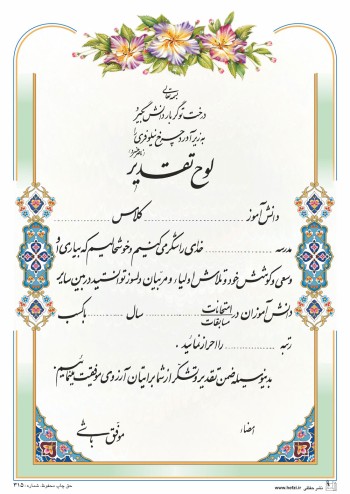 بسمه تعالی
درخت تو گر بار دانش بگیرد
به زیر آوری چرخ نیلوفری را
(ناصر خسرو)
لوح تقدیر
دانش آموز ........ کلاس ........
مدرسه ........ خدای را شکر می کنیم و خوشحالیم که بیاری او
وسعی وکوشش خود و تلاش اولیاء و مربیان دلسوز توانستید در بین سایر
دانش آموزان در امتحانات / مسابقات ........ سال ........ باکسب
رتبه ........ را احراز نمائید .
بدینوسیله ضمن تقدیر و تشکر از شما برایتان آرزوی موفقیت می نمائیم.
امضاء:
موفق باشی
نشر حافظی www.hefzi.ir
حق چاپ محفوظ. شماره: ۳۱۵